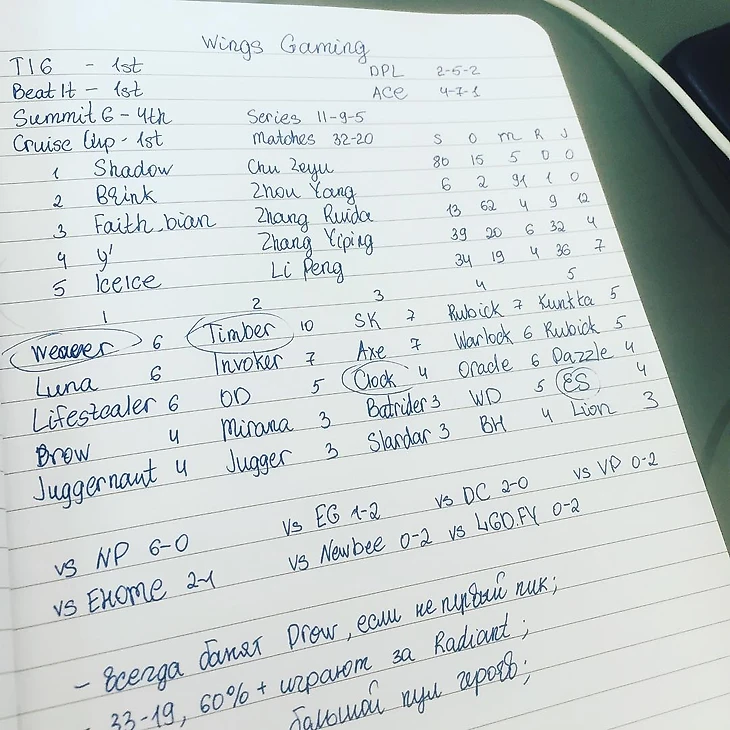 Wings Gaming
TI6 - 1st DPL 2-5-2
Beat It - 1st ACE 4-7-1
Summit 6 - 4th Series 11-9-5
Cruise Cup - 1st Matches 32-20 S O M R J
1 Shadow Chu Zeyu 80 15 5 0 0
2 Bλink Zhou Yang 6 2 91 1 0
3 Faith_bian Zhang Ruida 13 62 4 9 12
4 y' Zhang Yiping 39 20 6 32 4
5 IceIce Li Peng 34 19 4 36 7
1 2 3 4 5
Weaver 6 Timber 10 SK 7 Rubick 7 Kunkka 5
Luna 6 Invoker 7 Axe 7 Warlock 6 Rubick 5
Lifestealer 6 OD 5 Clock 4 Oracle 6 Dazzle 4
Drow 4 Mirana 3 Batrider 3 WD 5 ES 4
Juggernaut 4 Jugger 3 Slardar 3 BH 4 Lion 3
vs NP 6-0 vs EG 1-2 vs DC 2-0 vs VP 0-2
vs EHOME 2-1 vs Newbee 0-2 vs LGD.FY 0-2
- всегда банят Drow, если не первый пик;
- 33-19, 60% + играют за Radiant;
большой пул героев;